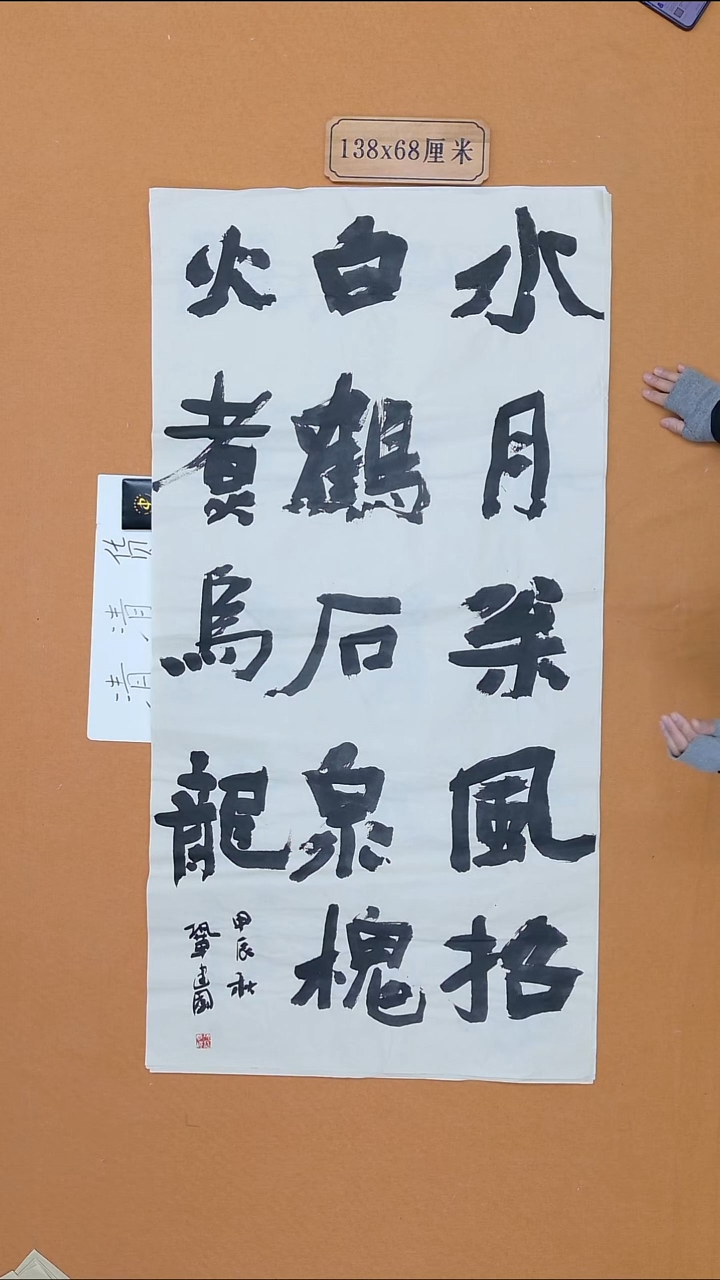 138x68厘米
水月枀風招
白鶴石泉槐
火煮烏龍
甲辰秋
鞏建國
清清货